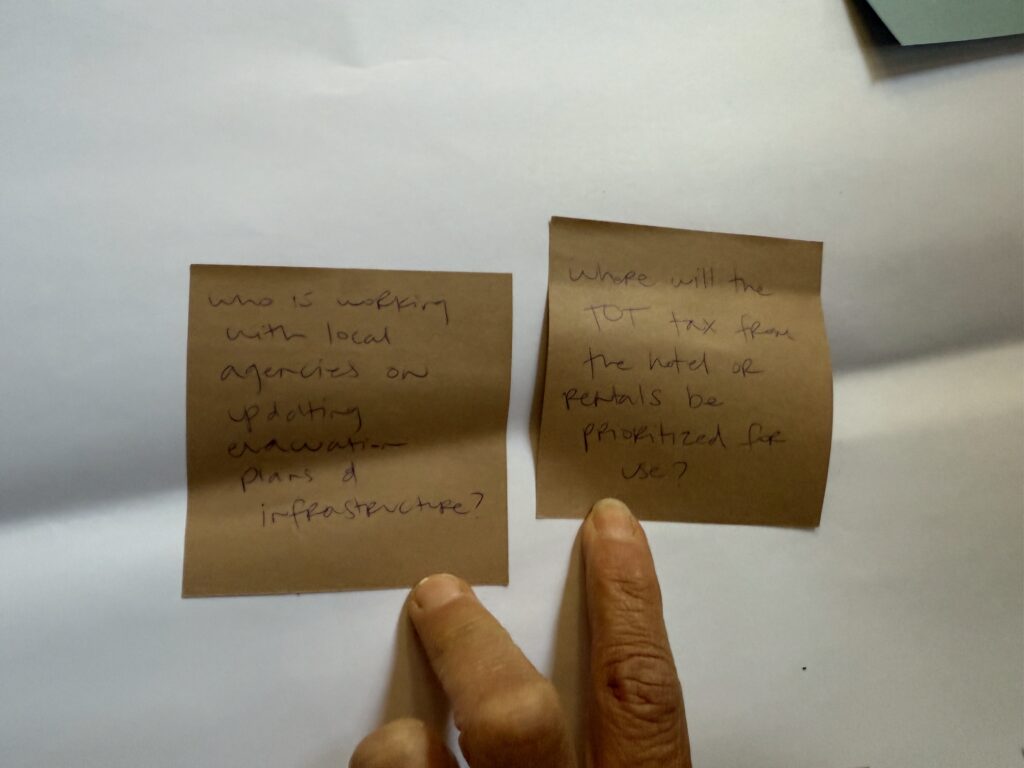 who is working
with local
agencies on
updating
evacuation
plans &
infrastructure?
where will the
TOT tax from
the hotel or
rentals be
prioritized for
use?